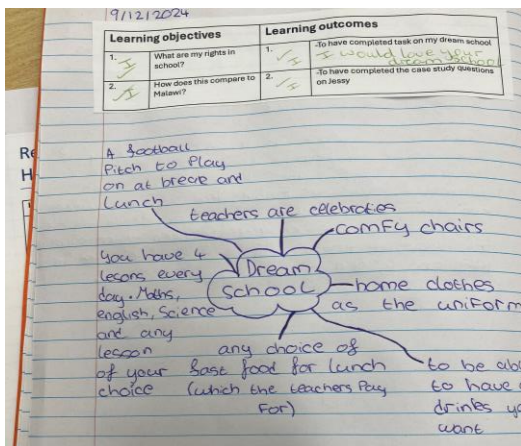 9/12/2024
Learning objectives
Learning outcomes
1.
What are my rights in
school?
1.
-To have completed task on my dream school
I would love your
dream school
2.
How does this compare to
Malawi?
2.
-To have completed the case study questions
on Jessy
Re
H
A football
Pitch to Play
on at breae and
Lunch
teachers are celebraties
comfy chairs
you have 4
lesons every
day. Maths,
english, Science
and any
lesson
of your
choice
Dream
School
home clothes
as the uniform
any choice of
fast food for lunch
(which the teachers Pay
For)
to be abl
to have
drinks yo
want